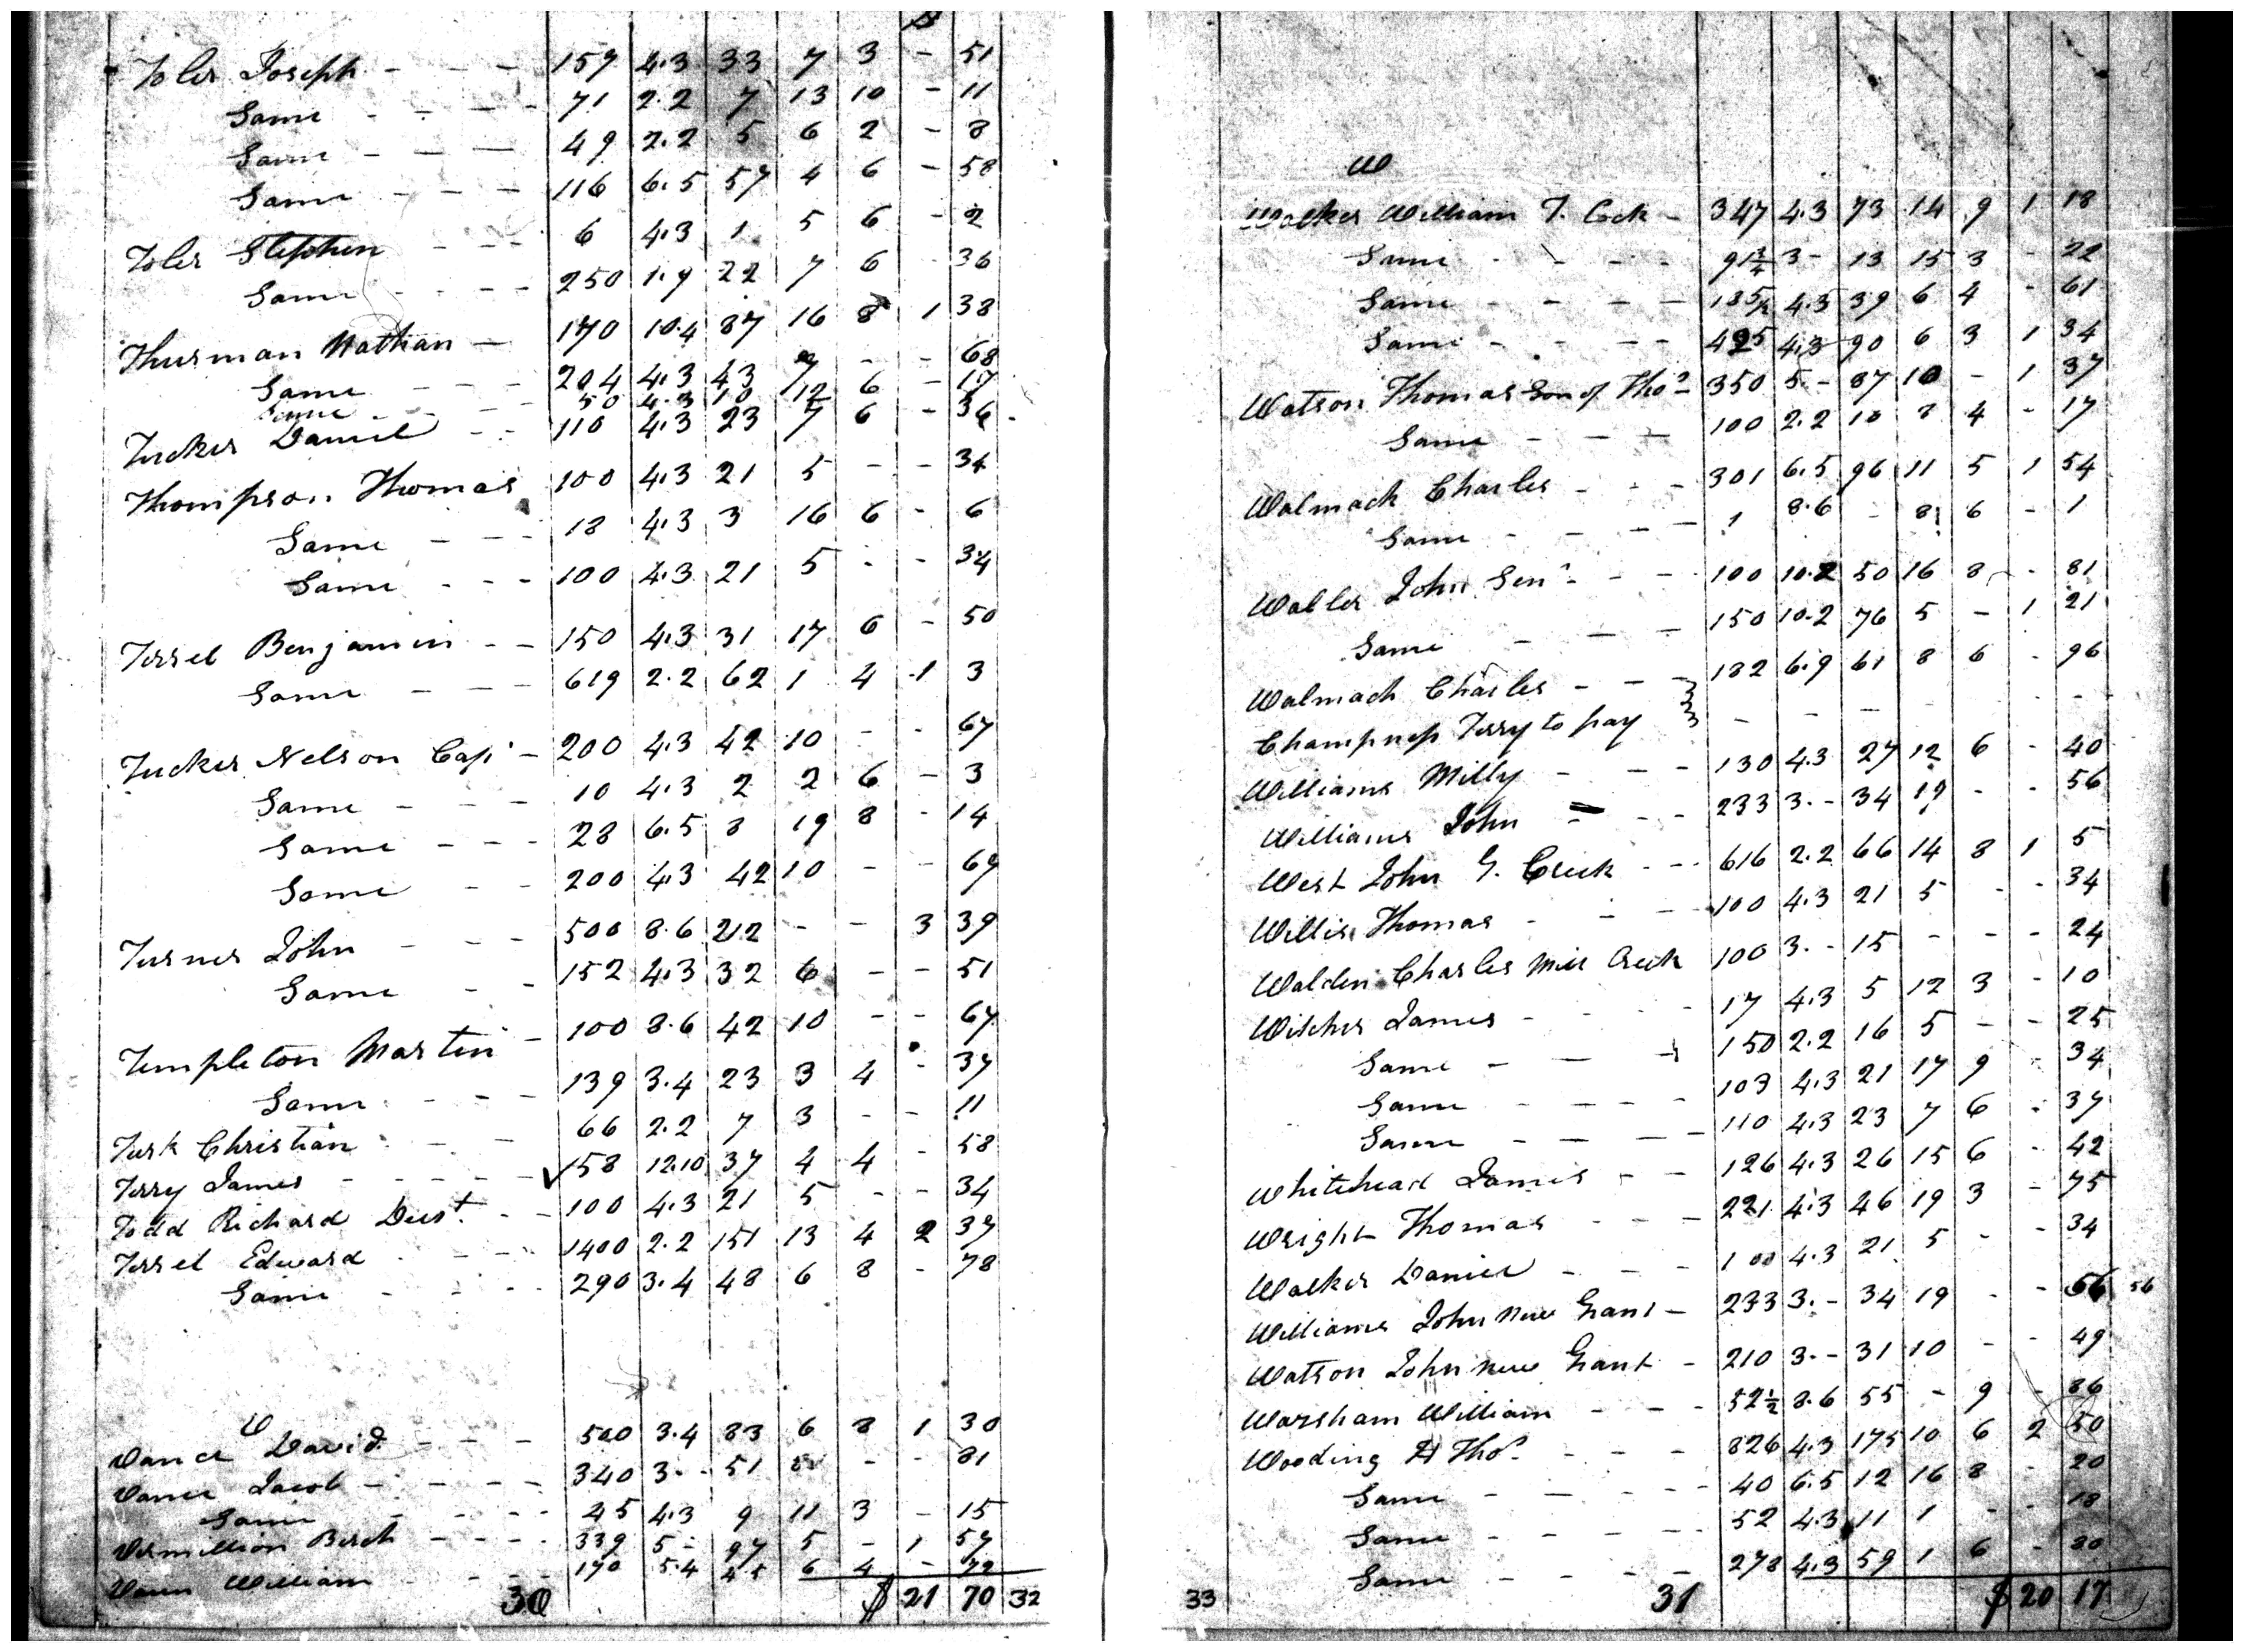 $
Toler Joseph - - - 157 4.3 33 7 3 - 51
Same - - - - 71 2.2 7 13 10 - 11
Same - - - 49 2.2 5 6 2 - 8
Same - - - 116 6.5 57 4 6 - 58
Toler Stephen - - - 6 4.3 1 5 6 - 2
Same - - - - 250 1.9 22 7 6 - 36
Thurman Nathan - 170 10.4 87 16 8 1 38
Same - - - 204 4.3 43 7 - - 68
Same - - 50 4.3 10 12 6 - 17
Tucker Daniel - - 110 4.3 23 7 6 - 36
Thompson Thomas 100 4.3 21 5 - - 34
Same - - - 18 4.3 3 16 6 - 6
Same - - - 100 4.3 21 5 - - 34
Terrel Benjamin - - 150 4.3 31 17 6 - 50
Same - - - 619 2.2 62 1 4 1 3
Tucker Nelson Capt - 200 4.3 42 10 - - 67
Same - - - 10 4.3 2 2 6 - 3
Same - - - 28 6.5 8 19 8 - 14
Same - - 200 4.3 42 10 - - 67
Turner John - - - 500 8.6 212 - - 3 39
Same - - 152 4.3 32 6 - - 51
Templeton Martin - 100 8.6 42 10 - - 67
Same - - - 139 3.4 23 3 4 - 37
Tusk Christian - - - 66 2.2 7 3 - - 11
Terry James - - - - - 158 12.10 37 4 4 - 58
Todd Richard Dest. - - 100 4.3 21 5 - - 34
Terrel Edward - - - 1400 2.2 151 13 4 2 37
Same - - - 290 3.4 48 6 8 - 78
V
Vance David - - - 500 3.4 83 6 8 1 30
Vance Jacob - - - - 340 3. - 51 - - 81
Same - - - - 45 4.3 9 11 3 - 15
Vermillion Birch - - - - 339 5 - 97 5 - 1 57
Vann William - - - - 170 5.4 45 6 4 - 72
30 $ 21 70 32
W
Walker William T. Cock - 347 4.3 73 14 9 1 18
Same - - - - 91¾ 3 - 13 15 3 - 22
Same - - - - 185½ 4.3 39 6 4 - 61
Same - - - - 425 4.3 90 6 3 1 34
Watson Thomas Son of Thos 350 5. - 87 10 - 1 37
Same - - - 100 2.2 10 8 4 - 17
Walmack Charles - - - 301 6.5 96 11 5 1 54
Same - - - - 1 8.6 - 8 6 - 1
Waller John Senr - - - 100 10.2 50 16 8 - 81
Same - - - 150 10.2 76 5 - 1 21
Walmack Charles - - - 182 6.9 61 8 6 - 96
Champness Terry to pay } - - - - -
Williams Milly - - - 130 4.3 27 12 6 - 40
Williams John - - - 233 3. - 34 19 - - 56
West John G. Creek - - - 616 2.2 66 14 8 1 5
Willis Thomas - - - 100 4.3 21 5 - - 34
Walden Charles Mill Creek 100 3. - 15 - - - 24
Witcher James - - - 17 4.3 5 12 3 - 10
Same - - - 150 2.2 16 5 - - 25
Same - - - - 103 4.3 21 17 9 - 34
Same - - - - 110 4.3 23 7 6 - 37
Whitehead James - - 126 4.3 26 15 6 - 42
Wright Thomas - - - 221 4.3 46 19 3 - 75
Walker Daniel - - - 100 4.3 21 5 - - 34
Williams John New Grant - 233 3. - 34 19 - - 56 56
Watson John New Grant - 210 3 - - 31 10 - - 49
Warsham William - - - 52½ 8.6 55 - 9 - 86
Wooding H Thos - - - 826 4.3 175 10 6 2 50
Same - - - - - 40 6.5 12 16 8 - 20
Same - - - - 52 4.3 11 1 - - 18
Same - - - - 278 4.3 59 1 6 -
33 31 $ 20 17